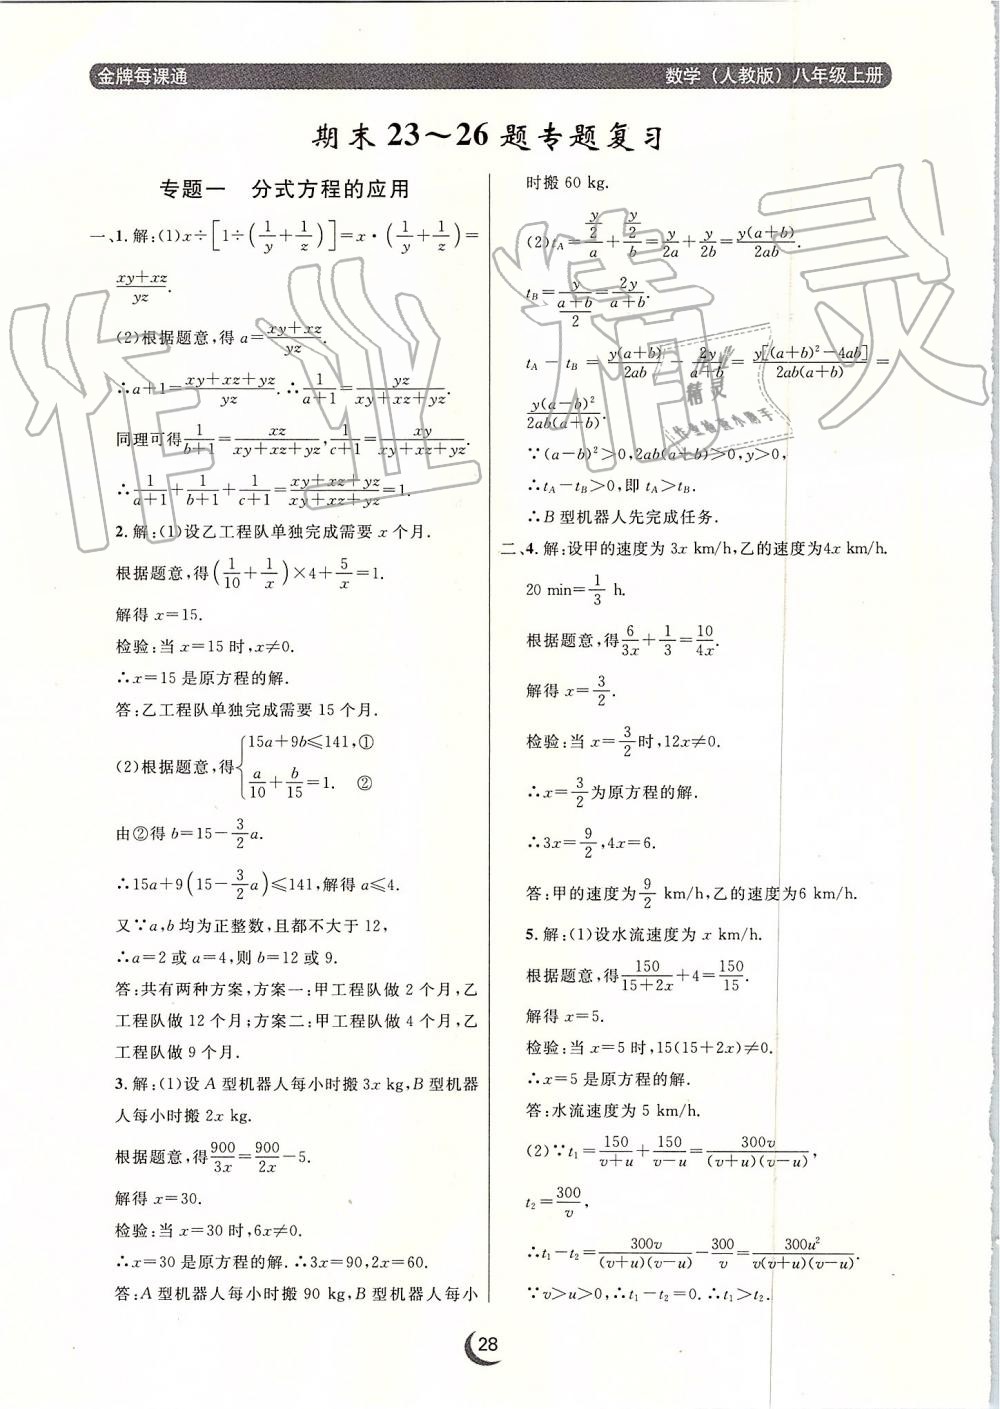 金牌每课通
数学（人教版）八年级上册
期末23～26题专题复习
专题一　分式方程的应用
一、1.解:(1)x÷[1÷(1/y+1/z)]=x·(1/y+1/z)=
(xy+xz)/yz.
(2)根据题意,得a=(xy+xz)/yz.
∴a+1=(xy+xz+yz)/yz.∴1/(a+1)=yz/(xy+xz+yz).
同理可得1/(b+1)=xz/(xy+xz+yz),1/(c+1)=xy/(xy+xz+yz).
∴1/(a+1)+1/(b+1)+1/(c+1)=(xy+xz+yz)/(xy+xz+yz)=1.
2.解:(1)设乙工程队单独完成需要x个月.
根据题意,得(1/10+1/x)×4+5/x=1.
解得x=15.
检验:当x=15时,x≠0.
∴x=15是原方程的解.
答:乙工程队单独完成需要15个月.
(2)根据题意,得{15a+9b≤141,①
a/10+b/15=1. ②
由②得b=15-3/2a.
∴15a+9(15-3/2a)≤141,解得a≤4.
又∵a,b均为正整数,且都不大于12,
∴a=2或a=4,则b=12或9.
答:共有两种方案,方案一:甲工程队做2个月,乙
工程队做12个月;方案二:甲工程队做4个月,乙
工程队做9个月.
3.解:(1)设A型机器人每小时搬3x kg,B型机器
人每小时搬2x kg.
根据题意,得900/3x=900/2x-5.
解得x=30.
检验:当x=30时,6x≠0.
∴x=30是原方程的解.∴3x=90,2x=60.
答:A型机器人每小时搬90 kg,B型机器人每小
时搬60 kg.
(2)tA=(y/2)/a+(y/2)/b=y/2a+y/2b=y(a+b)/2ab.
tB=y/((a+b)/2)=2y/(a+b).
tA-tB=y(a+b)/2ab-2y/(a+b)=y[(a+b)²-4ab]/2ab(a+b)=
y(a-b)²/2ab(a+b).
∵(a-b)²>0,2ab(a+b)>0,y>0,
∴tA-tB>0,即tA>tB.
∴B型机器人先完成任务.
二、4.解:设甲的速度为3x km/h,乙的速度为4x km/h.
20 min=1/3 h.
根据题意,得6/3x+1/3=10/4x.
解得x=3/2.
检验:当x=3/2时,12x≠0.
∴x=3/2为原方程的解.
∴3x=9/2,4x=6.
答:甲的速度为9/2 km/h,乙的速度为6 km/h.
5.解:(1)设水流速度为x km/h.
根据题意,得150/(15+2x)+4=150/15.
解得x=5.
检验:当x=5时,15(15+2x)≠0.
∴x=5是原方程的解.
答:水流速度为5 km/h.
(2)∵t₁=150/(v+u)+150/(v-u)=300v/(v+u)(v-u),
t₂=300/v,
∴t₁-t₂=300v/(v+u)(v-u)-300/v=300u²/v(v+u)(v-u).
∵v>u>0,∴t₁-t₂=0.∴t₁>t₂.
28
作业精灵
作业精灵